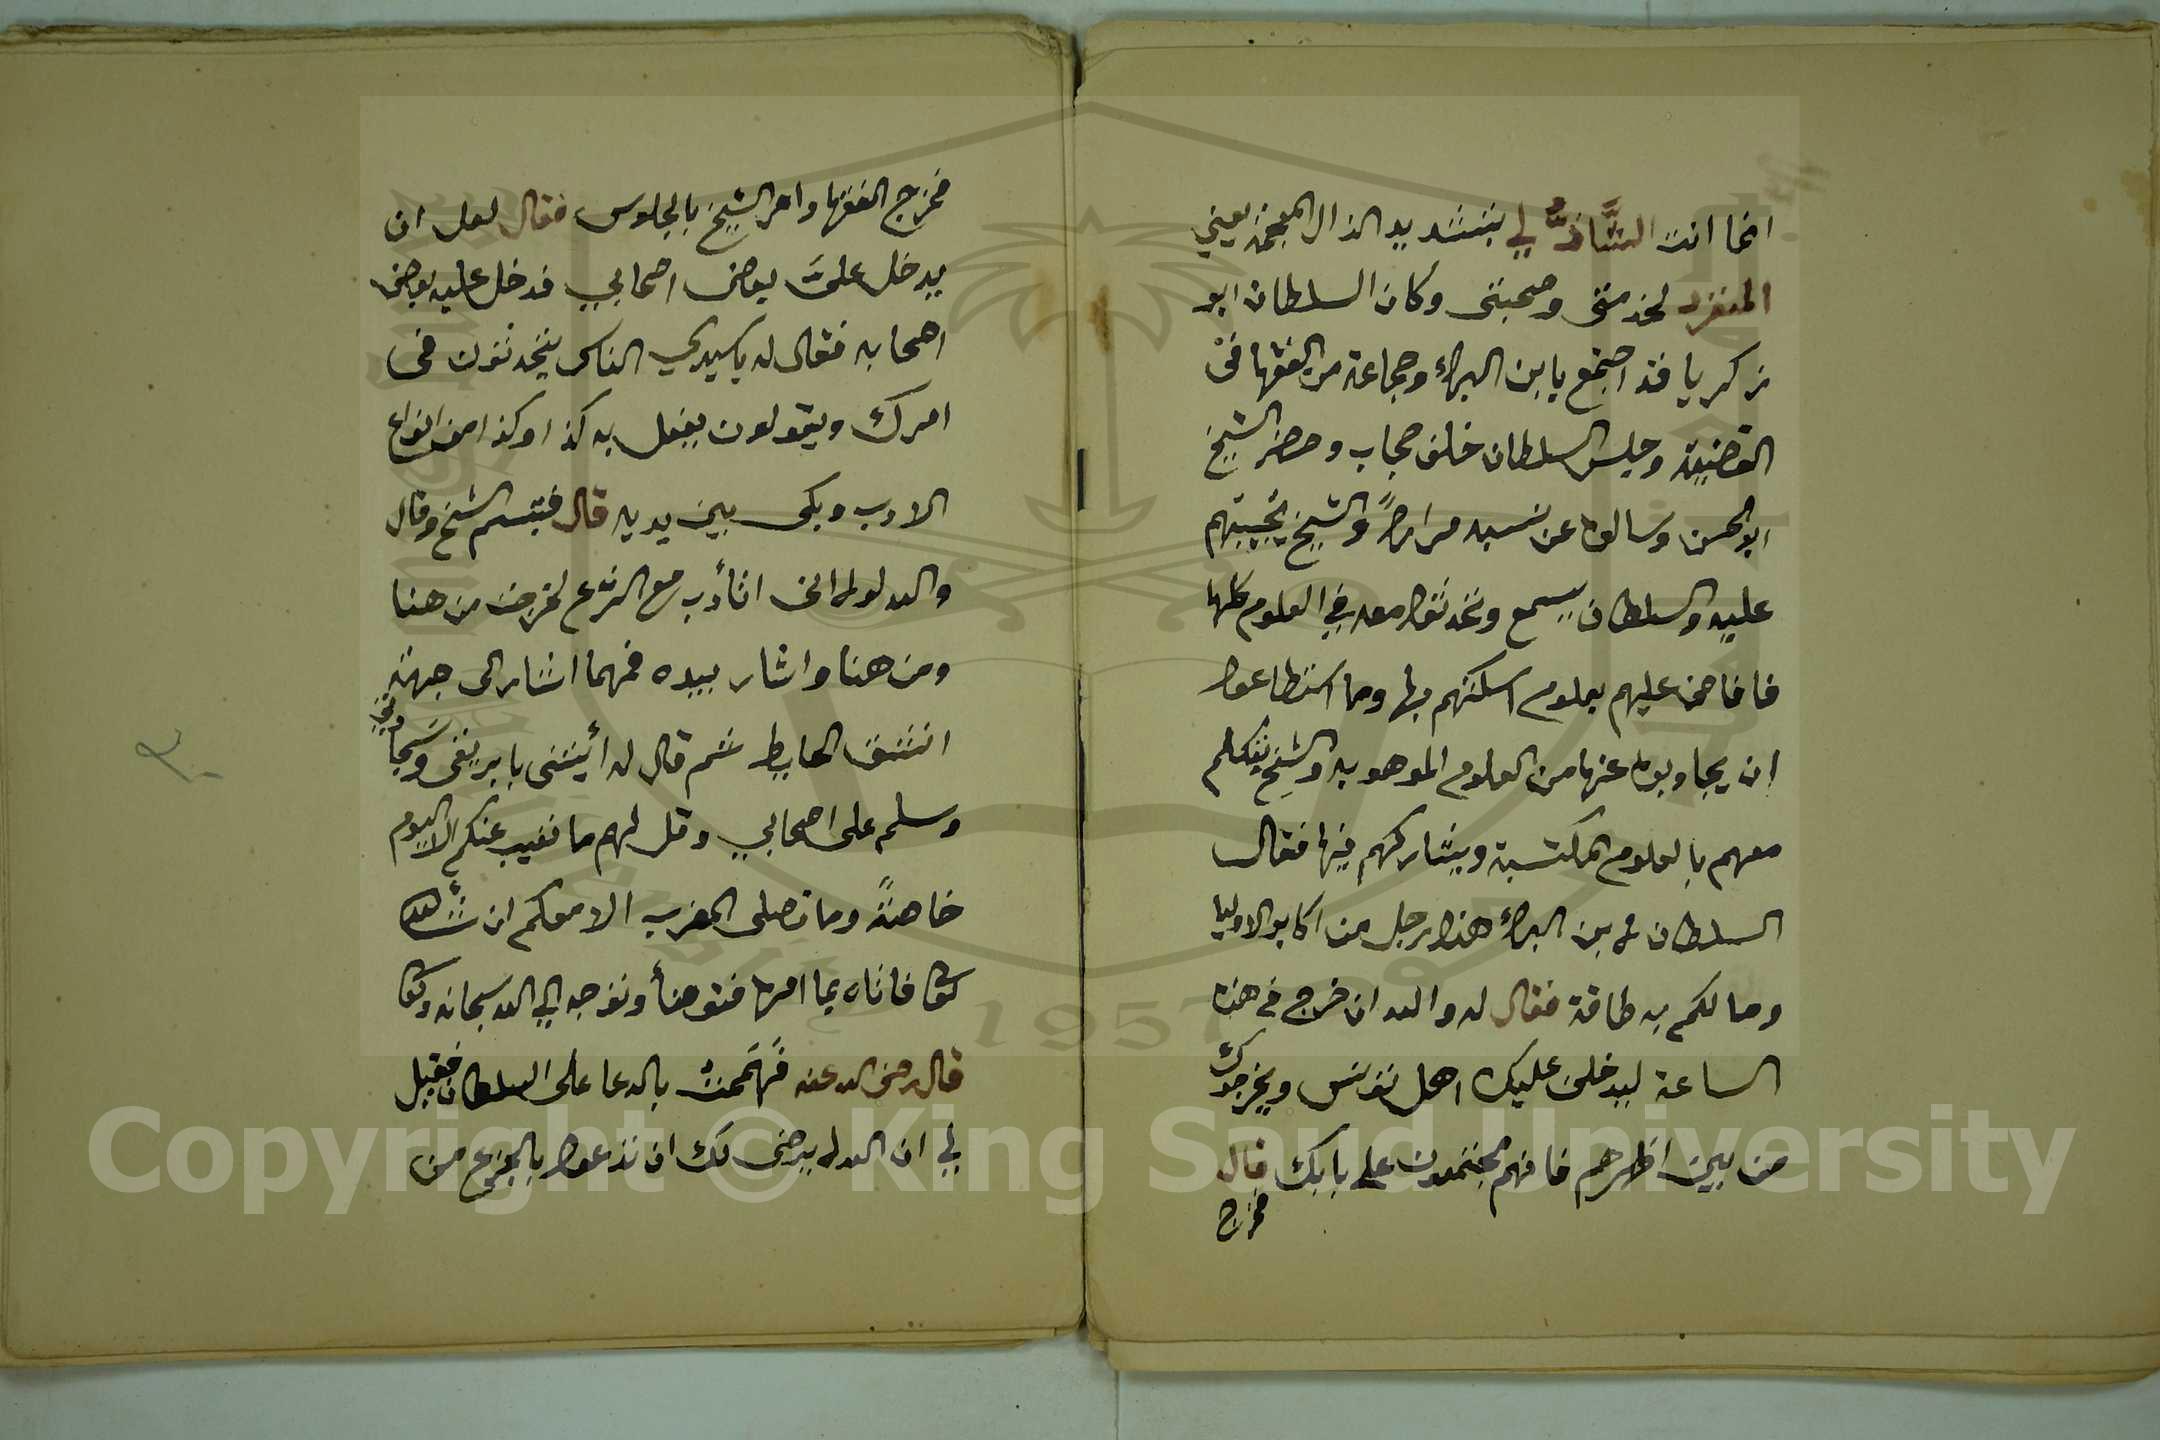 انما انت الشَّاذُّ لي بتشديد الذال المعجمة يعني
المنفرد لخدمتي وصحبتي وكان السلطان ابو
زكريا قد اجتمع يا بن البراء وجماعة من الفقها في
القضية وجلس السلطان خلف حجاب وحضر الشيخ
ابو الحسن وسالوه عن نسبه مرارًا والشيخ يجيبهم
عليه والسلطان يسمع وتحدثوا معه في العلوم كلها
فافاض عليهم بعلوم اسكتهم بها وما استطاعوا
ان يجاوبوه عنها من العلوم الموهوبه والشيخ يتكلم
معهم بالعلوم المكتسبة ويشاركهم فيها فقال
السلطان لابن البراء هذا رجل من اكابر الاوليا
وما لكم به طاقة فقال له والله ان خرج في هذه
الساعة ليدخلن عليك اهل تونس ويخرجوك
من بين اظهرهم فانهم مجتمعون على بابك قال
فخرج
فخرج الفقها وامر الشيخ بالجلوس فقال لعل ان
يدخل عليَّ بعض اصحابي فدخل عليه بعض
اصحابه فقال له يا سيدي الناس يتحدثون في
امرك ويقولون يفعل به كذا وكذا من انواع
الادب وبكى بين يديه قال فتبسم الشيخ وقال
والله لولا انى اتأدب مع الشرع لخرجت من هنا
ومن هنا واشار بيده فمهما اشار الى جهة
انشق الحايط ثم قال له أيتنى بابريق وسجادتي
وسلم على اصحابي وقل لهم ما نغيب عنكم الا اليوم
خاصةً وما نصلى المغرب الا معكم ان شأ الله
تعالى فاتاه بما امره فتوضأ وتوجه الي الله سبحانه وتعالى
قال رضى الله عنه فهَممتُ بالدعا على السلطان فقيل
لي ان الله لا يرضى لك ان تدعوا بالجزع من
1957
Copyright © King Saud University